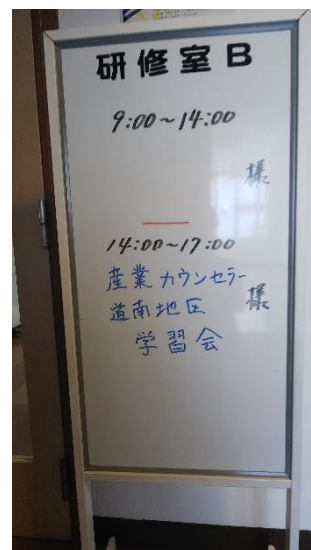 研修室B
9:00~14:00
様
14:00~17:00
産業カウンセラー
道南地区 様
学習会